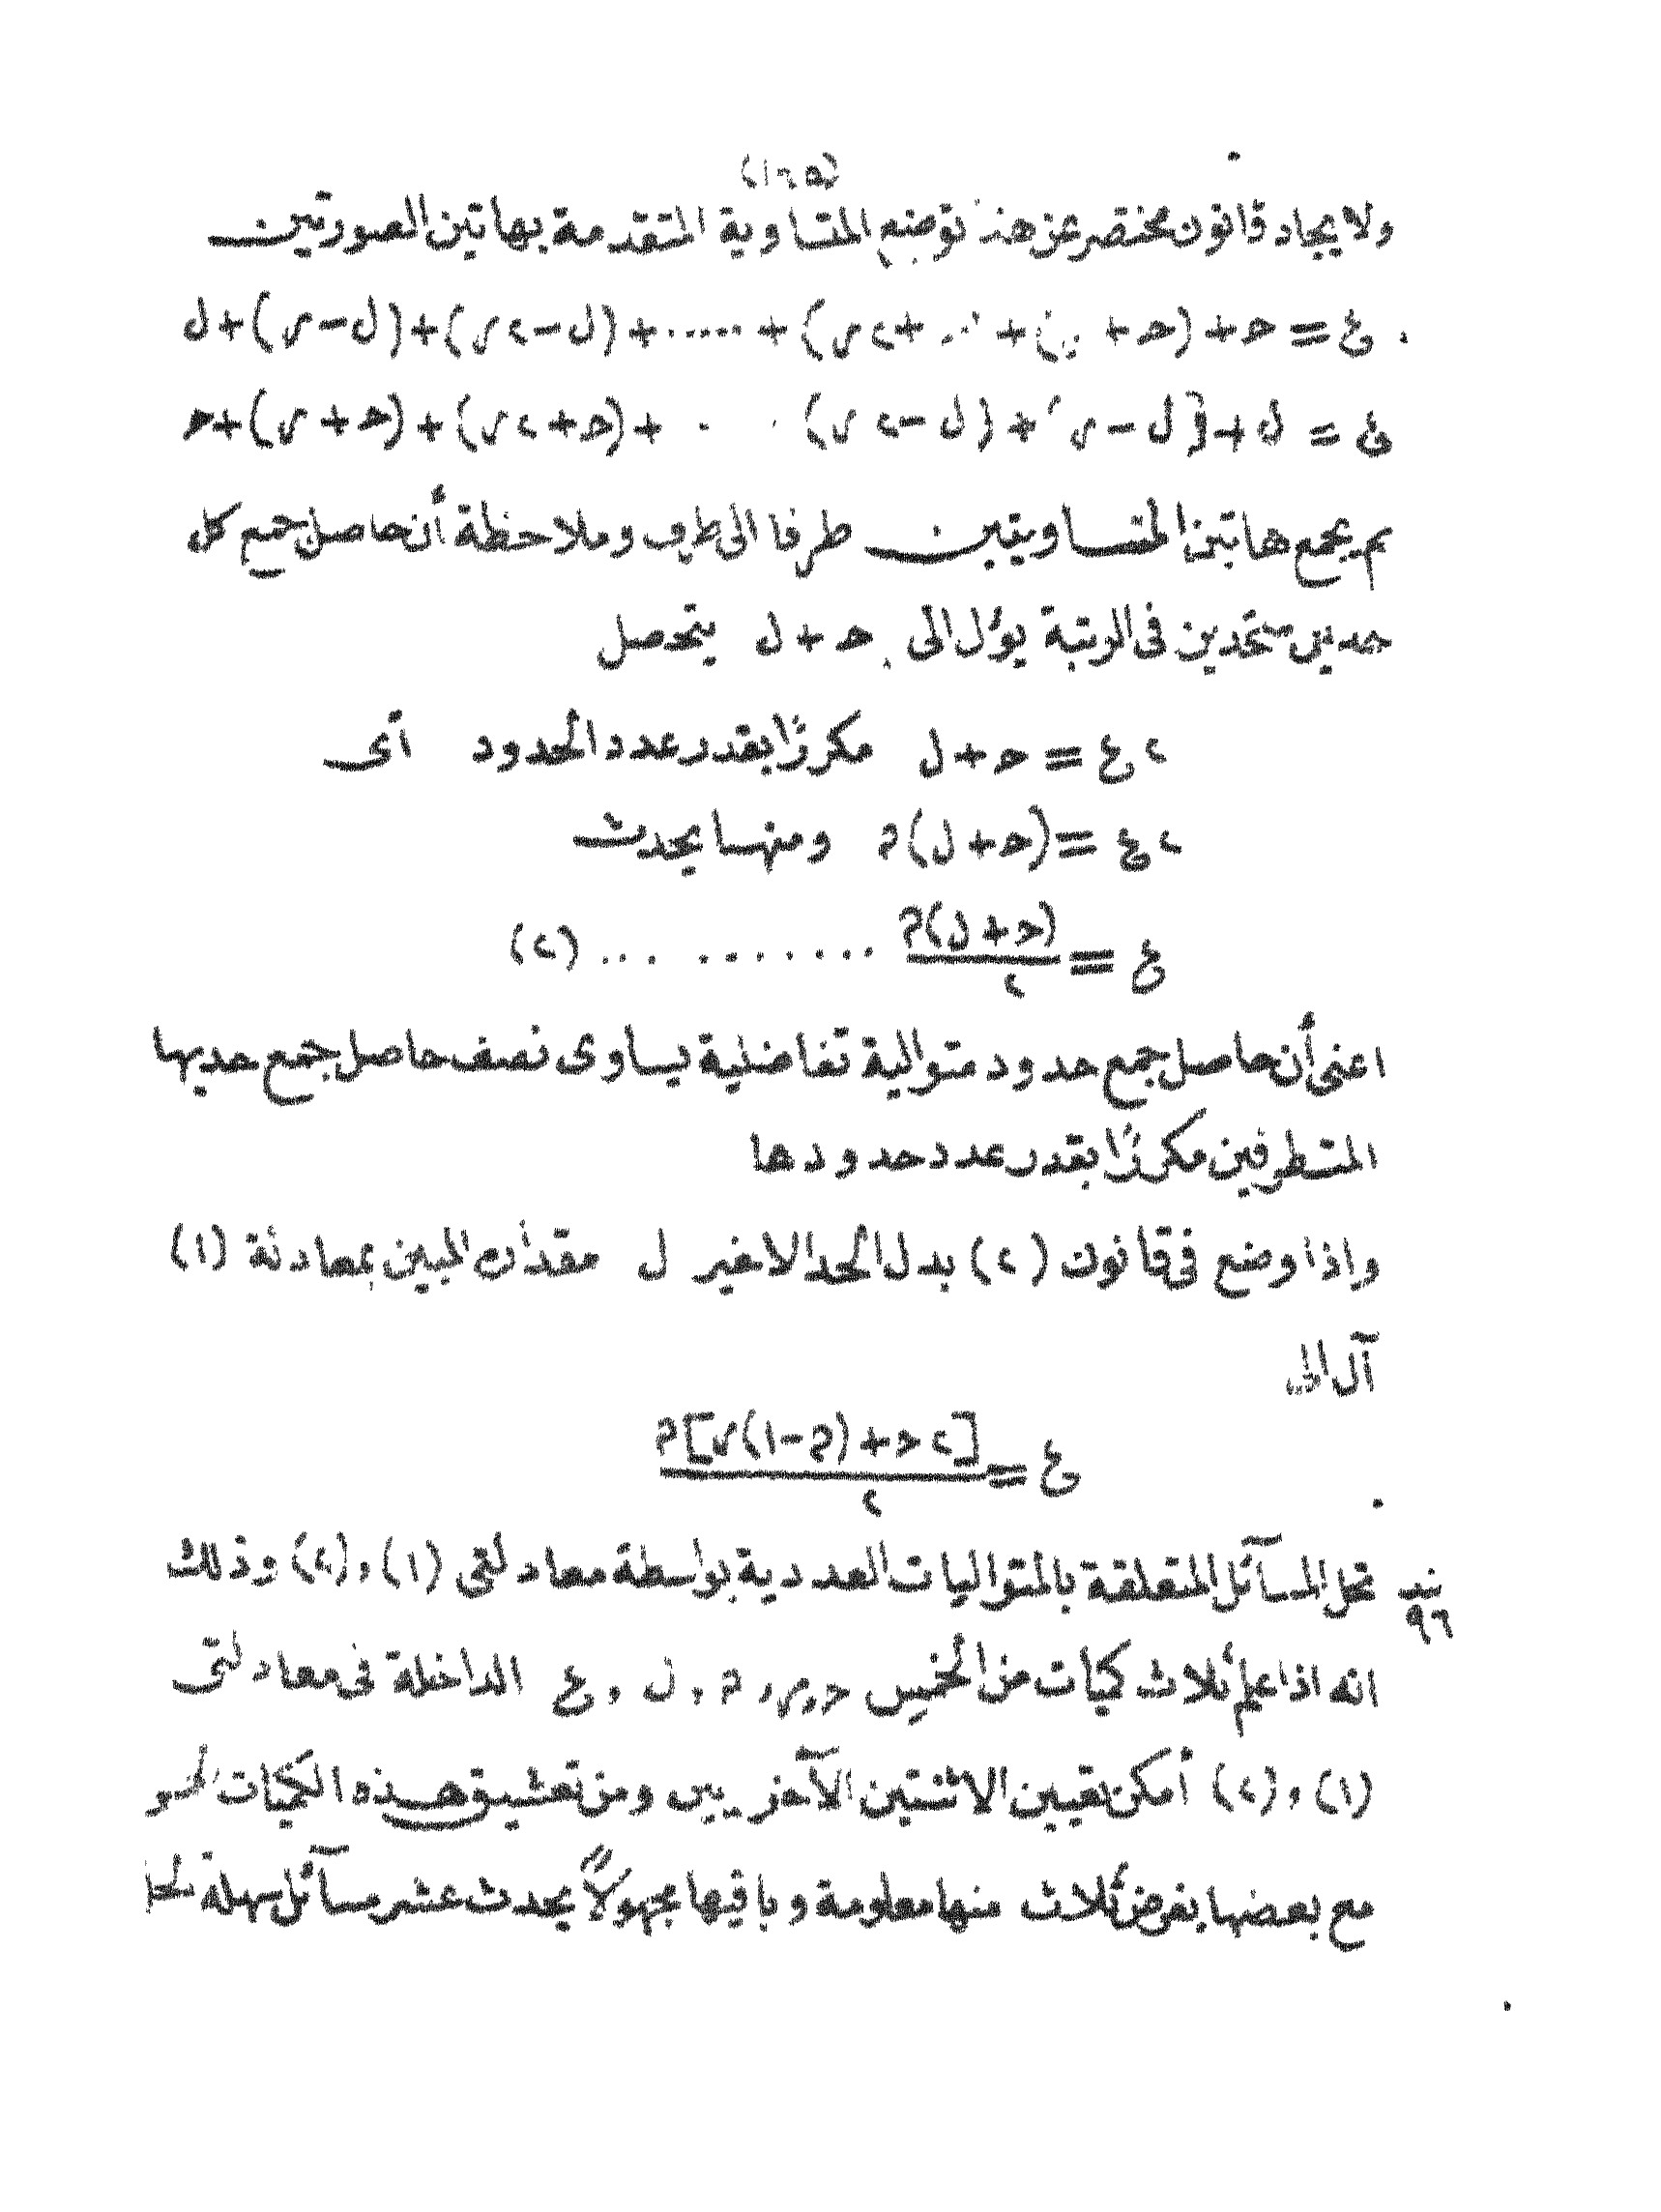 (١٦٥)
ولايجاد قانون مختصر عن هذا توضع المتساوية المتقدمة بهاتين الصورتين
ع = حـ + (حـ + ر) + (حـ + ٢ ر) + ..... + (ل − ٢ ر) + (ل − ر) + ل
ع = ل + (ل − ر) + (ل − ٢ ر) . . + (حـ + ٢ ر) + (حـ + ر) + حـ
ثم بجمع هاتين المتساويتين طرفا الى طرف وملاحظة أن حاصل جمع كل
حدين متحدين فى الرتبة يؤل الى حـ + ل يتحصل
٢ ع = حـ + ل مكررًا بقدر عدد الحدود أى
٢ ع = (حـ + ل) م ومنها يحدث
ع = (حـ + ل) م / ٢ ........... (٢)
اعنى أن حاصل جمع حدود متوالية تفاضلية يساوى نصف حاصل جمع حديها
المتطرفين مكررًا بقدر عدد حدودها
واذا وضع فى قانون (٢) بدل الحد الاخير ل مقداره المبين بمعادلة (١)
آل الى
ع = [٢ حـ + (م − ١) ر] م / ٢
بند ٩٦ تحل المسآئل المتعلقة بالمتواليات العددية بواسطة معادلتى (١) ، (٢) وذلك
انه اذا علم ثلاث كميات من الخمس حـ ، ر ، م ، ل ، ع الداخلة فى معادلتى
(١) ، (٢) أمكن تعيين الاثنتين الآخريين ومن تعشيق هذه الكميات
مع بعضها بفرض ثلاث منها معلومة وباقيها مجهولاً يحدث عشر مسآئل سهلة الحل